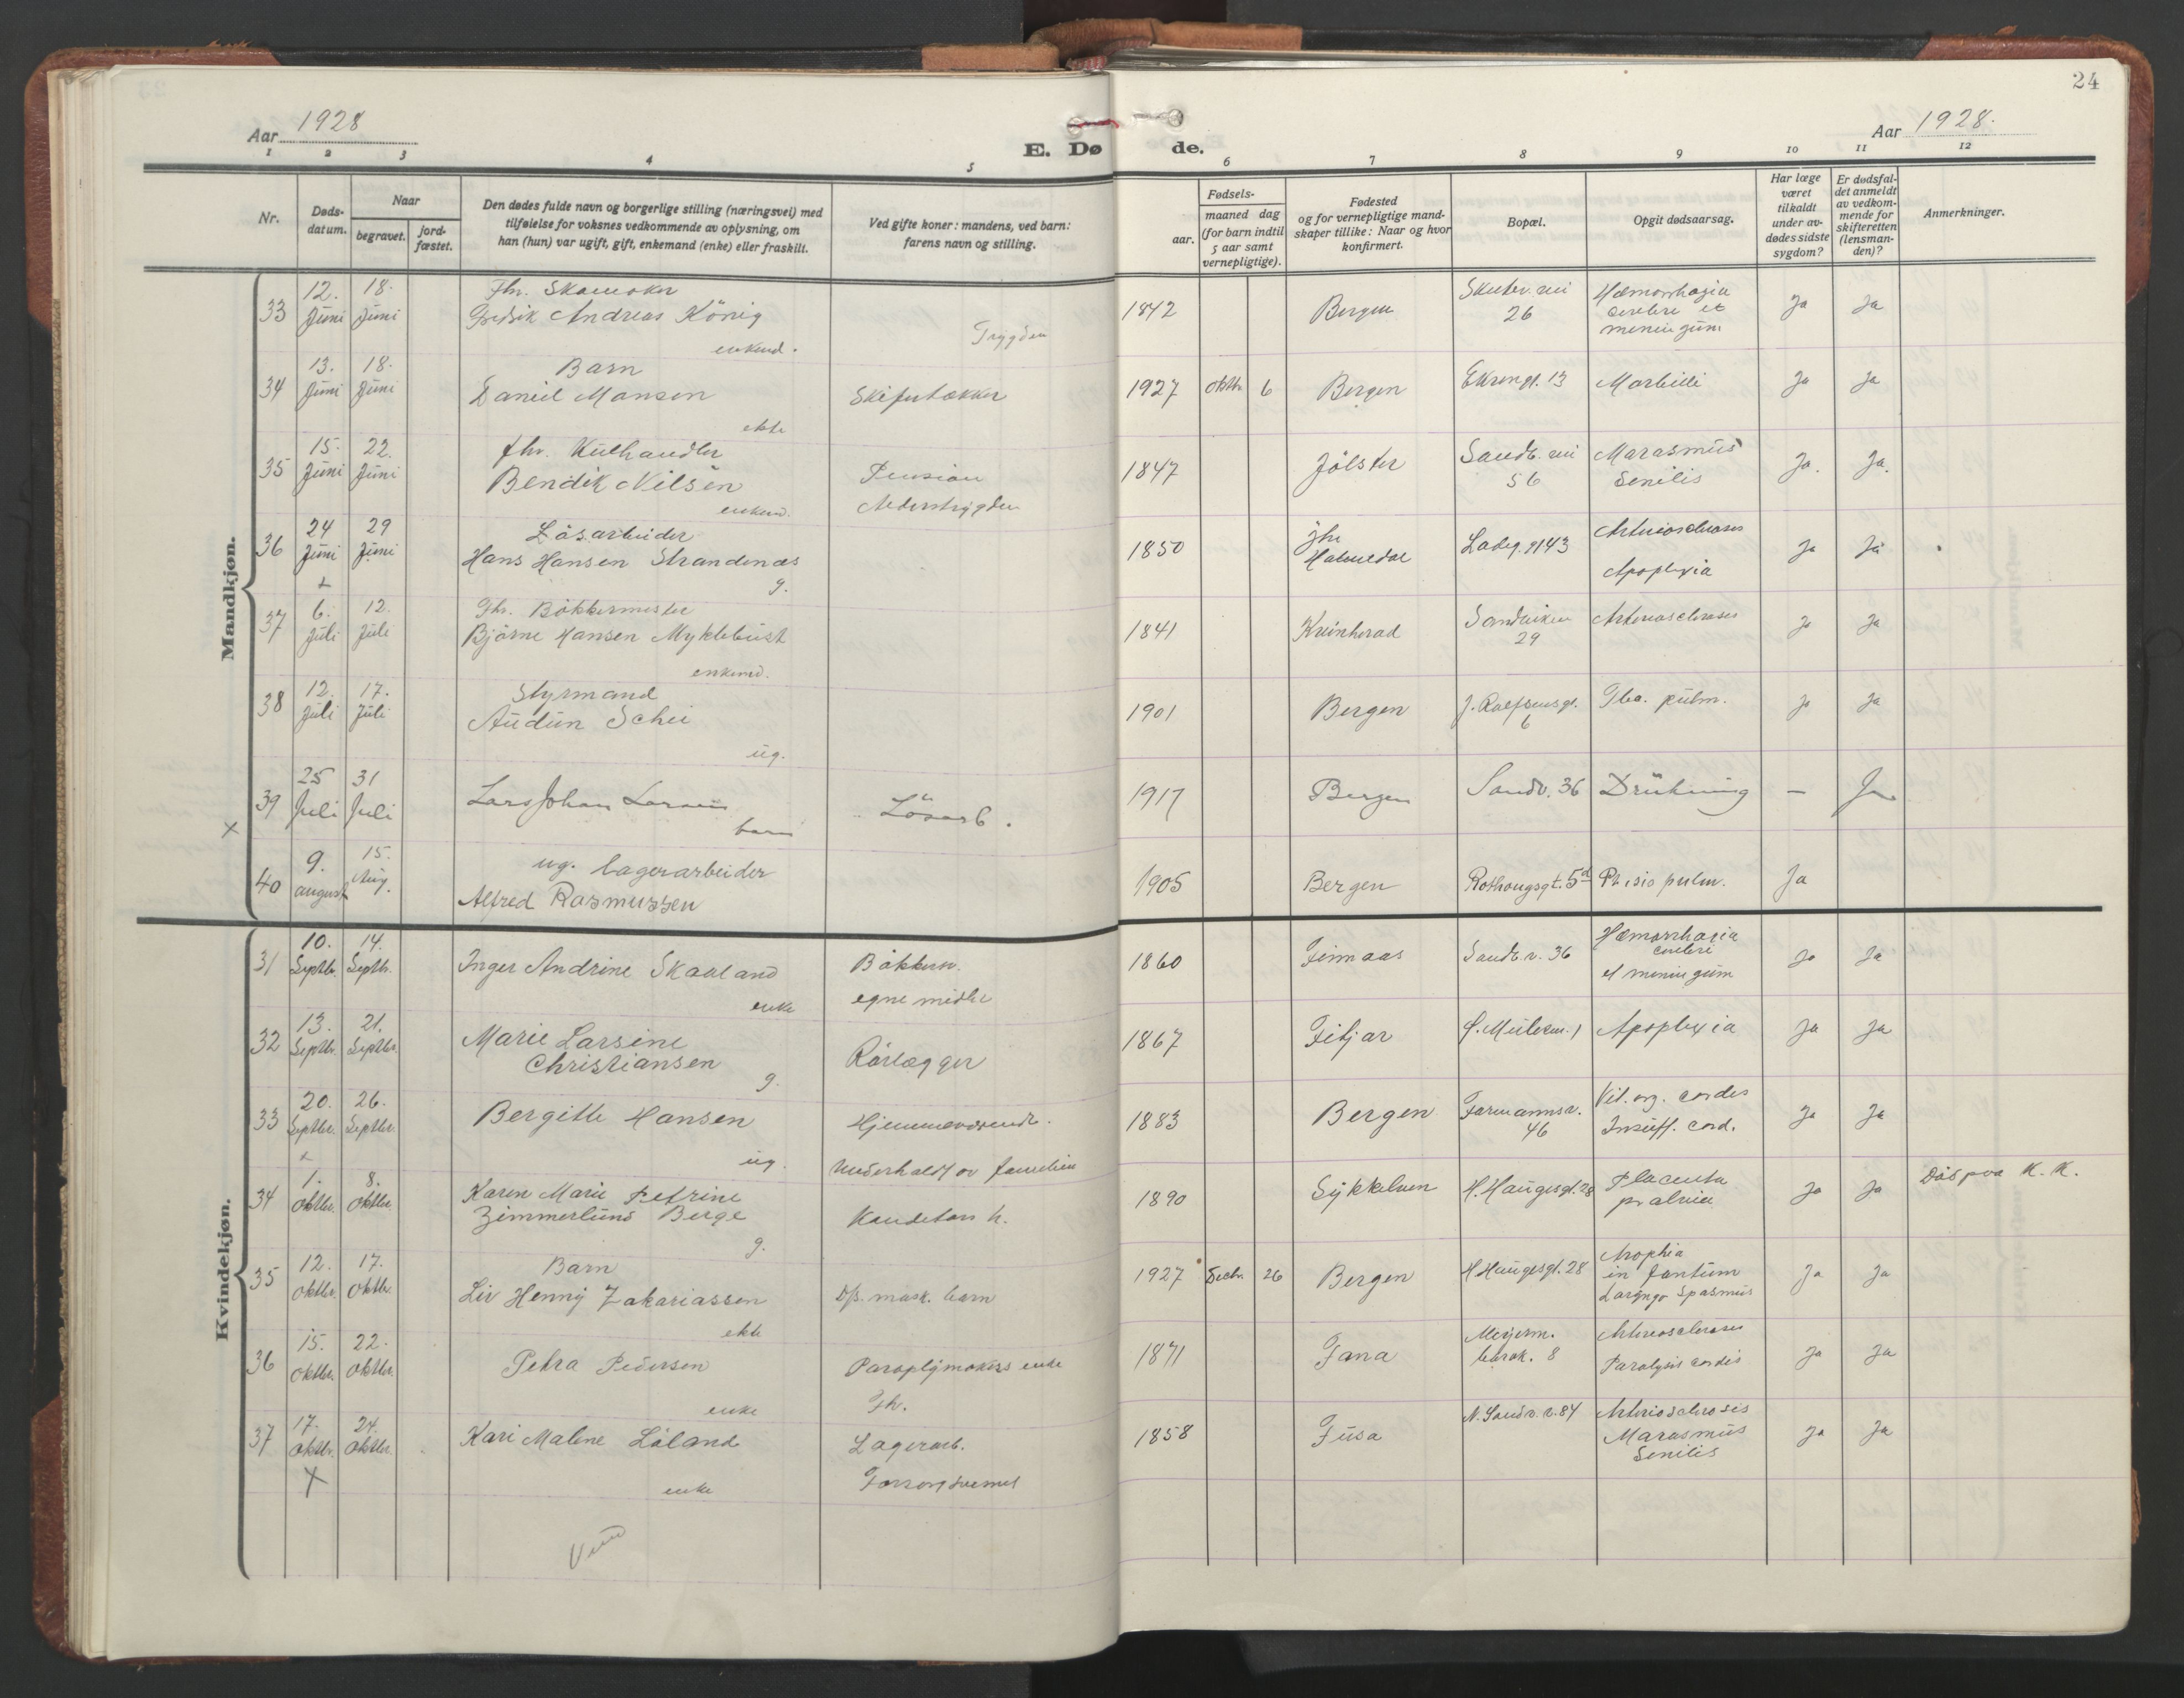 24
Aar 1928
Aar 1928.
E. Dø de.
1 2 3 4 5 6 7 8 9 10 11 12
Nr.
Døds-
datum.
Naar
begravet.
jord-
fæstet.
Den dødes fulde navn og borgerlige stilling (næringsvei) med
tilføielse for voksnes vedkommende av oplysning, om
han (hun) var ugift, gift, enkemand (enke) eller fraskilt.
Ved gifte koner: mandens, ved barn:
farens navn og stilling.
Fødsels-
aar.
maaned dag
(for barn indtil
5 aar samt
vernepligtige).
Fødested
og for vernepligtige mand-
skaper tillike: Naar og hvor
konfirmert.
Bopæl.
Opgit dødsaarsag.
Har læge
været
tilkaldt
under av-
dødes sidste
sygdom?
Er dødsfal-
det anmeldt
av vedkom-
mende for
skifteretten
(lensman-
den)?
Anmerkninger.
Mandkjøn.
33 12. Juni 18. Juni
Fhv. Skomaker
Fredrik Andreas König
enkemd.
Trygden
1842 Bergen
Skutev. vei
26
Hæmorrhagia
cerebri et
meningum
Ja Ja
34 13. Juni 18. Juni
Barn
Daniel Monsen
ekte
Skifertækker
1927 Oktbr 6 Bergen Ekrengt. 13 Morbilli Ja Ja
35 15. Juni 22. Juni
fhv. Kulhandler
Bendik Nilsen
enkem.
Pension
Alderstrygden
1847 Jölster
Sandv. vei
56
Marasmus
Senilis
Ja. Ja.
36 24 Juni 29 Juni
Lösarbeider
Hans Hansen Strandenæs
g.
1850
Ytre
Holmedal
Ladeg. gt 43
Arteriosclerosis
Apoplexia
Ja Ja
37 6. Juli 12. Juli
Fhv. Bökkermester
Bjørne Hansen Myklebust
enkemd.
1841 Kvinherad
Sandviken
29
Arteriosclerosis
Ja Ja
38 12. Juli 17. Juli
Styrmand
Audun Schei
ug.
1901 Bergen
J. Rolfsensgt.
6
Tba. pulm.
Ja Ja
39 25 Juli 31 Juli
Lars Johan Larsen
barn
Lösarb.
1917 Bergen Sandv. 36 Drukning — Ja
40 9. august 15. Aug.
ug. lagerarbeider
Alfred Rasmussen
1905 Bergen Rothaugsgt. 5d Phisis pulm. Ja
Kvindekjøn.
31 10. Septbr. 14. Septbr.
Inger Andrine Skaaland
enke
Bökkerm.
egne midler
1860 Finnaas Sandv. v. 36
Hæmorrhagia
cerebri
et meningum
Ja Ja
32 13. Septbr. 21. Septbr.
Marie Larsine
Christiansen
g.
Rörlægger
1867 Fitjar Apoplexia Ja Ja
33 20. Septbr. 26. Septbr.
Bergitte Hansen
ug.
Hjemmeværende.
Underholdt av familien
1883 Bergen
Formannsv.
46
Vit. org. cordis
Insuff. cord.
Ja Ja
34 1. Oktbr. 8. Oktbr.
Karen Marie Petrine
Zimmerlund Berge
g.
Konditors h.
1890 Sykkelven H. Haugesgt. 28
Placenta
prævia
Ja Ja
Död paa K. K.
35 12. Oktbr. 17. Oktbr.
Barn
Liv Henny Zakariassen
ekte
D/s. mask. barn
1927 Decbr. 26 Bergen H. Haugesgt. 28
Atrophia
infantum
Laryngo Spasmus
Ja Ja
36 15. Oktbr. 22. Oktbr.
Petra Pedersen
enke
Paraplymakers enke
Fh.
1871 Fana
brak. 8
Arteriosclerosis
Paralysis cordis
Ja Ja
37 17. Oktbr. 24. Oktbr.
Kari Malene Löland
enke
Lagerarb.
Forsorgsvæsenet
1858 Fusa N. Sandv. v. 84
Arteriosclerosis
Marasmus
Senilis
Ja Ja